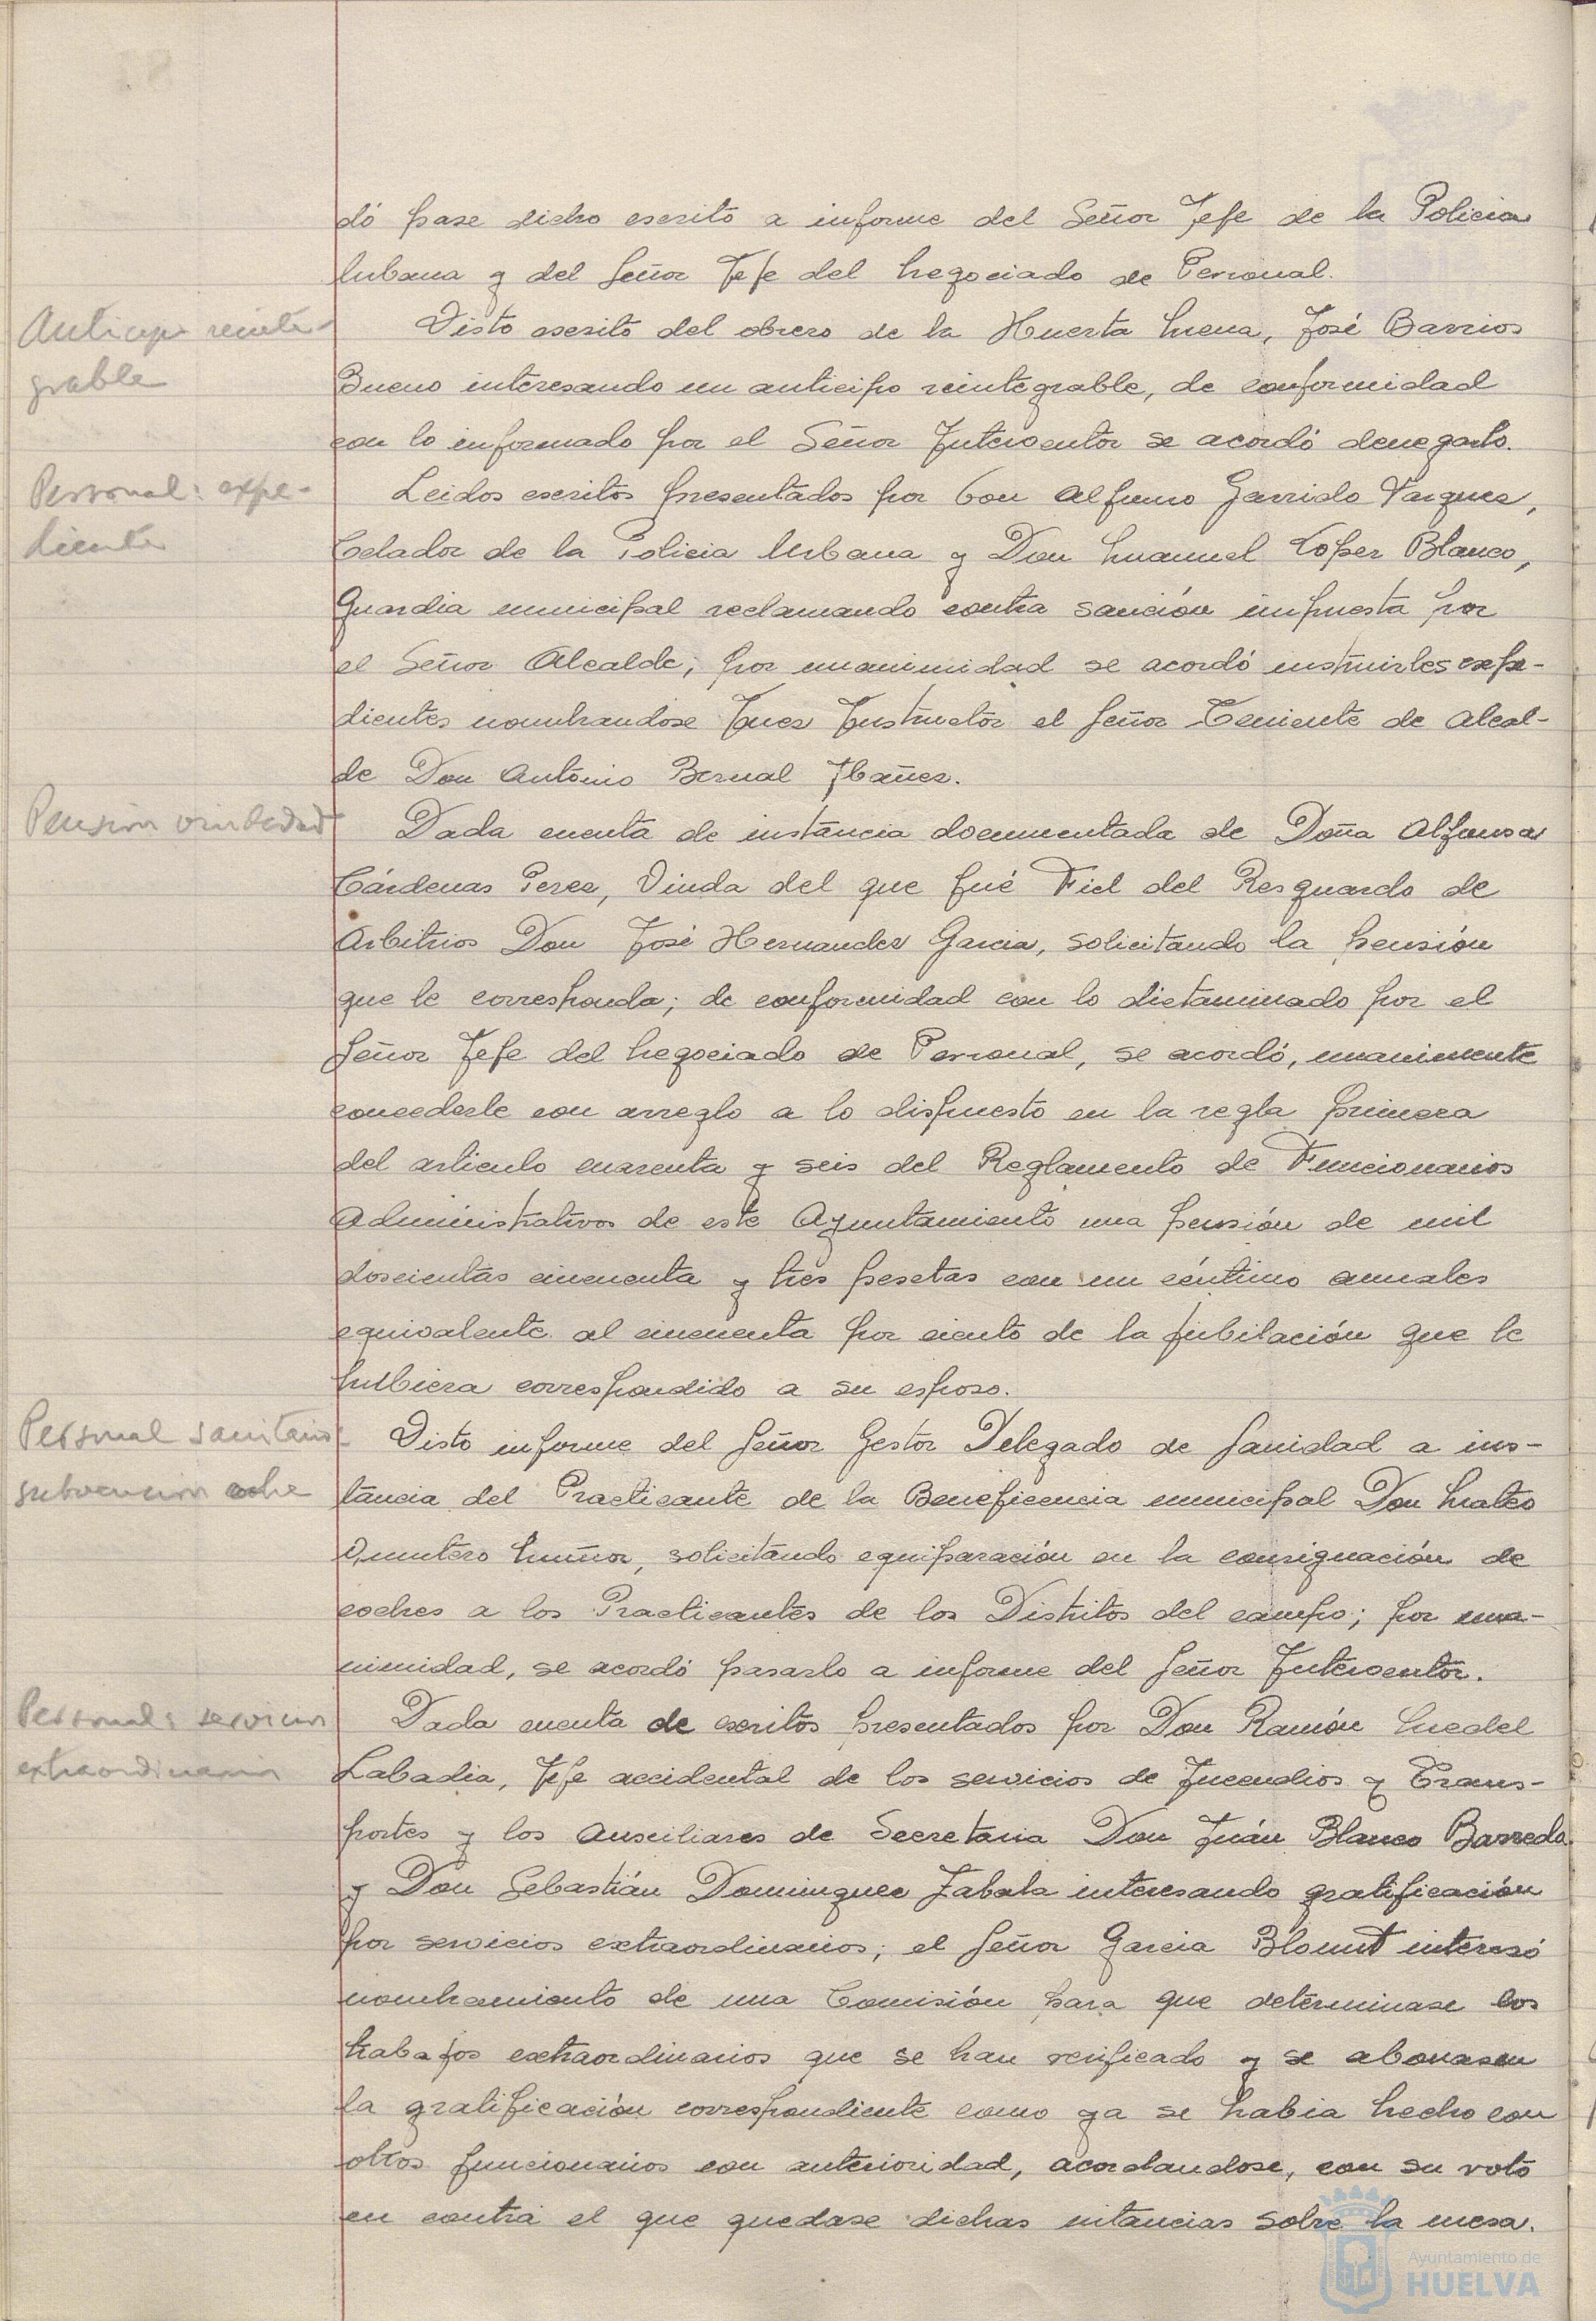 dó pase dicho escrito a informe del Señor Jefe de la Policia
Urbana y del Señor Jefe del Negociado de Personal.
Anticipo reinte-
grable
Visto escrito del obrero de la Huerta Mena, José Barrios
Bueno interesando un anticipo reintegrable, de conformidad
con lo informado por el Señor Interventor se acordó denegarlo.
Personal: expe-
diente
Leidos escritos presentados por Don Alfonso Garrido Vazquez,
Celador de la Policia Urbana y Don Manuel López Blanco,
Guardia municipal reclamando contra sanción impuesta por
el Señor Alcalde; por unanimidad se acordó instruirles expe-
dientes nombrandose Juez Instructor el Señor Teniente de Alcal-
de Don Antonio Bernal Ibañez.
Pensión viudedad
Dada cuenta de instancia documentada de Doña Alfonsa
Cárdenas Perez, Viuda del que fué Fiel del Resguardo de
Arbitrios Don José Hernandez Garcia, solicitando la pensión
que le corresponda; de conformidad con lo dictaminado por el
Señor Jefe del Negociado de Personal, se acordó, unanimente
concederle con arreglo a lo dispuesto en la regla primera
del articulo cuarenta y seis del Reglamento de Funcionarios
Administrativos de este Ayuntamiento una pensión de mil
doscientas cincuenta y tres pesetas con un céntimo anuales
equivalente al cincuenta por ciento de la jubilación que le
hubiera correspondido a su esposo.
Personal sanitario
subvencion coche
Visto informe del Señor Gestor Delegado de Sanidad a ins-
tancia del Practicante de la Beneficencia municipal Don Mateo
Quintero Muñoz, solicitando equiparación en la consignación de
coches a los Practicantes de los Distritos del campo; por una-
nimidad, se acordó pasarlo a informe del Señor Interventor.
Personal: servicios
extraordinarios
Dada cuenta de escritos presentados por Don Ramón
Labadia, Jefe accidental de los servicios de Incendios y Trans-
portes y los Auxiliares de Secretaria Don Juán Blanco Barreda
y Don Sebastián Dominguez Zabala interesando gratificación
por servicios extraordinarios; el Señor Garcia Blount interesó
nombramiento de una Comisión para que determinase los
trabajos extraordinarios que se han verificado y se abonasen
la gratificación correspondiente como ya se habia hecho con
otros funcionarios con anterioridad, acordandose, con su voto
en contra el que quedase dichas intancias sobre la mesa.
Ayuntamiento de
HUELVA